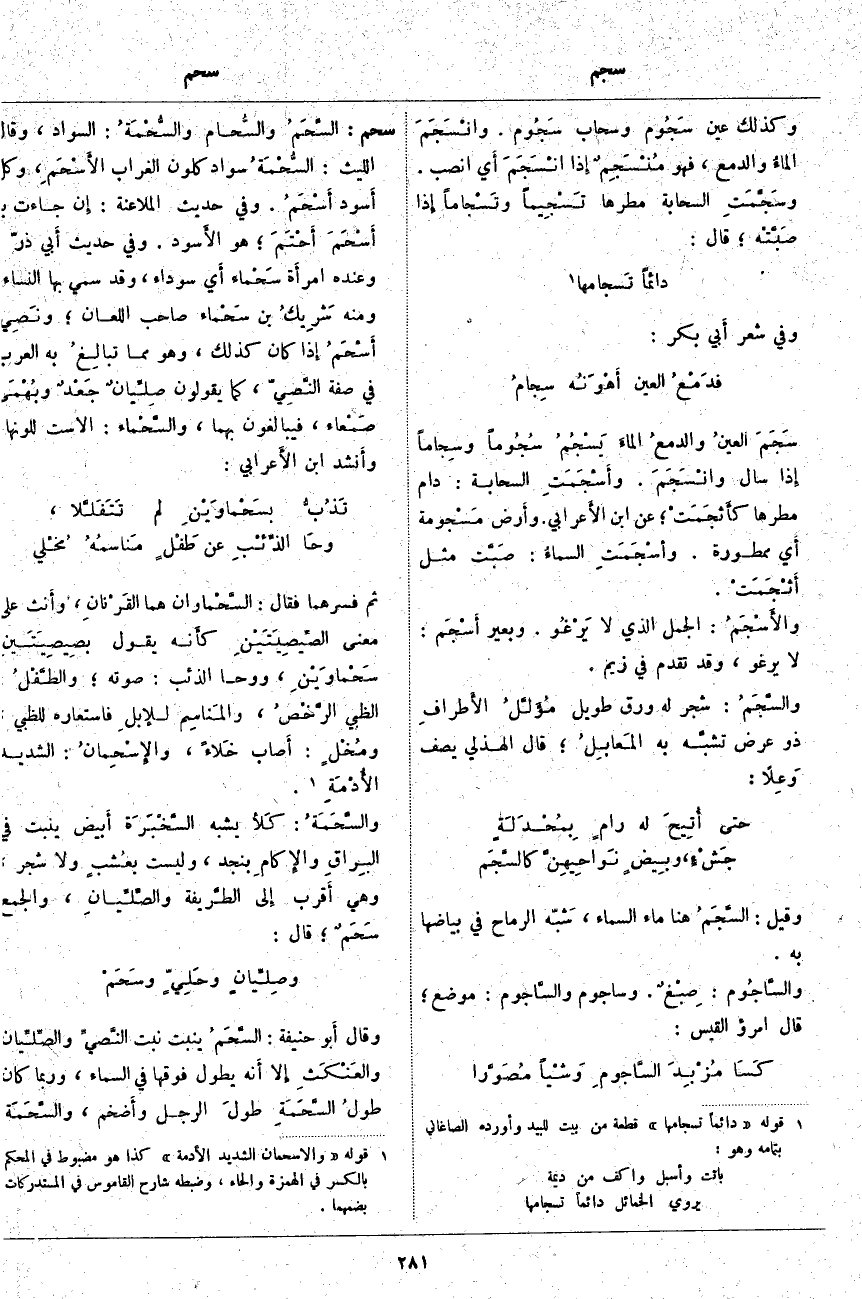 سجم
سحم
وكذلك عين سَجُوم وسحاب سَجُوم . وانْسَجَمَ
الماءُ والدمع ، فهو مُنْسَجِمٌ إذا انْسَجَمَ أي انصب .
وسَجَّمَتِ السحابة مطرها تَسْجِيماً وتَسْجاماً إذا
صَبَّتْه ؛ قال :
دائماً تَسجامها١
وفي شعر أبي بكر :
فدَمْعُ العين أَهْوَنُه سِجامُ
سَجَمَ العينُ والدمعُ الماءَ يَسْجُمُ سُجُوماً وسِجاماً
إذا سال وانْسَجَمَ . وأَسْجَمَتِ السحابة : دام
مطرها كأَثْجَمَتْ؛ عن ابن الأَعرابي. وأرض مَسْجومة
أي ممطورة . وأَسْجَمَتِ السماءُ : صَبَّت مثل
أَثْجَمَتْ .
والأَسْجَمُ : الجمل الذي لا يَرْغُو . وبعير أَسْجَم :
لا يرغو ، وقد تقدم في زيم .
والسَّجَمُ : شجر له ورق طويل مُؤلَّلُ الأَطرافِ
ذو عرض تشبَّه به المَعابِلُ ؛ قال الهذلي يصف
وَعِلًا :
حتى أُتِيحَ له رامٍ بِمُحْدَلَةٍ
جَشْءٍ، وبِيضٍ نَواحِيهِنَّ كالسَّجَم
وقيل : السَّجَمُ هنا ماء السماء ، شبّه الرماح في بياضها
به .
والسَّاجُوم : صِبْغٌ . وساجوم والسَّاجوم : موضع؛
قال امرؤ القيس :
كَسَا مُزْبِدَ السَّاجومِ وَشْياً مُصَوَّرا
١ قوله « دائماً تسجامها » قطعة من بيت للبيد وأورده الصاغاني
بتمامه وهو :
باتت وأسبل واكف من ديمة
يروي الخمائل دائماً تسجامها
سحم : السَّحَمُ والسُّحام والسُّحْمَةُ : السواد ، وقال
الليث : السُّحْمَةُ سواد كلون الغراب الأَسْحَمِ، وكل
أسود أَسْحَمُ . وفي حديث الملاعنة : إن جاءت
أَسْحَمَ أَحْتَمَ ؛ هو الأَسود . وفي حديث أبي ذرّ
وعنده امرأَة سَحْماء أي سوداء ، وقد سمي بها النساء
ومنه شَرِيكُ بن سَحْماء صاحب اللعان ؛ ونَصِي
أَسْحَمُ إذا كان كذلك ، وهو مما تبالِغُ به العرب
في صفة النَّصِيّ ، كما يقولون صِلِّيانٌ جَعْدٌ وبُهْمَى
صَمْعاء ، فيبالغون بهما ، والسَّحْماء : الاست للونها
وأنشد ابن الأَعرابي :
تَذُبُّ بسَحْماوَيْنِ لم تَتَفَلَّلا ،
وحَا الذِّئْبِ عن طَفْلٍ مَناسمُهُ مُخْلي
ثم فسرهما فقال : السَّحْماوان هما القَرْنانِ ، وأنث على
معنى الصِّيصِيَتَيْنِ كأَنه يقول بصِيصِيَتَيْنِ
سَحْماوَيْنِ ، ووحا الذئب : صوته ؛ والطَّفْلُ
الظبي الرَّخْصُ ، والمَناسِم للإبل فاستعاره للظبي ؛
ومُخْلٍ : أصاب خَلاءً ، والإسْحِمانُ : الشديد
الأُدْمَةِ ١ .
والسَّحَمَةُ : كَلأ يشبه السَّخْبَرَة أبيض ينبت في
البِراقِ والإكام بنجد ، وليست بعُشْبٍ ولا شجر ؛
وهي أقرب إلى الطَّرِيفة والصِّلِّيانِ ، والجمع
سَحَمٌ ؛ قال :
وصِلِّيانٍ وحَلِيٍّ وسَحَمْ
وقال أبو حنيفة : السَّحَمُ ينبت نبت النَّصيّ والصِّلِّيان
والعَنْكَثِ إلا أنه يطول فوقها في السماء ، وربما كان
طولُ السَّحَمَةِ طولَ الرجل وأضخم ، والسَّحَمَة
١ قوله « والاسحمان الشديد الأدمة » كذا هو مضبوط في المحكم
بالكسر في الهمزة والحاء ، وضبطه شارح القاموس في المستدركات
بضمهما .
٢٨١